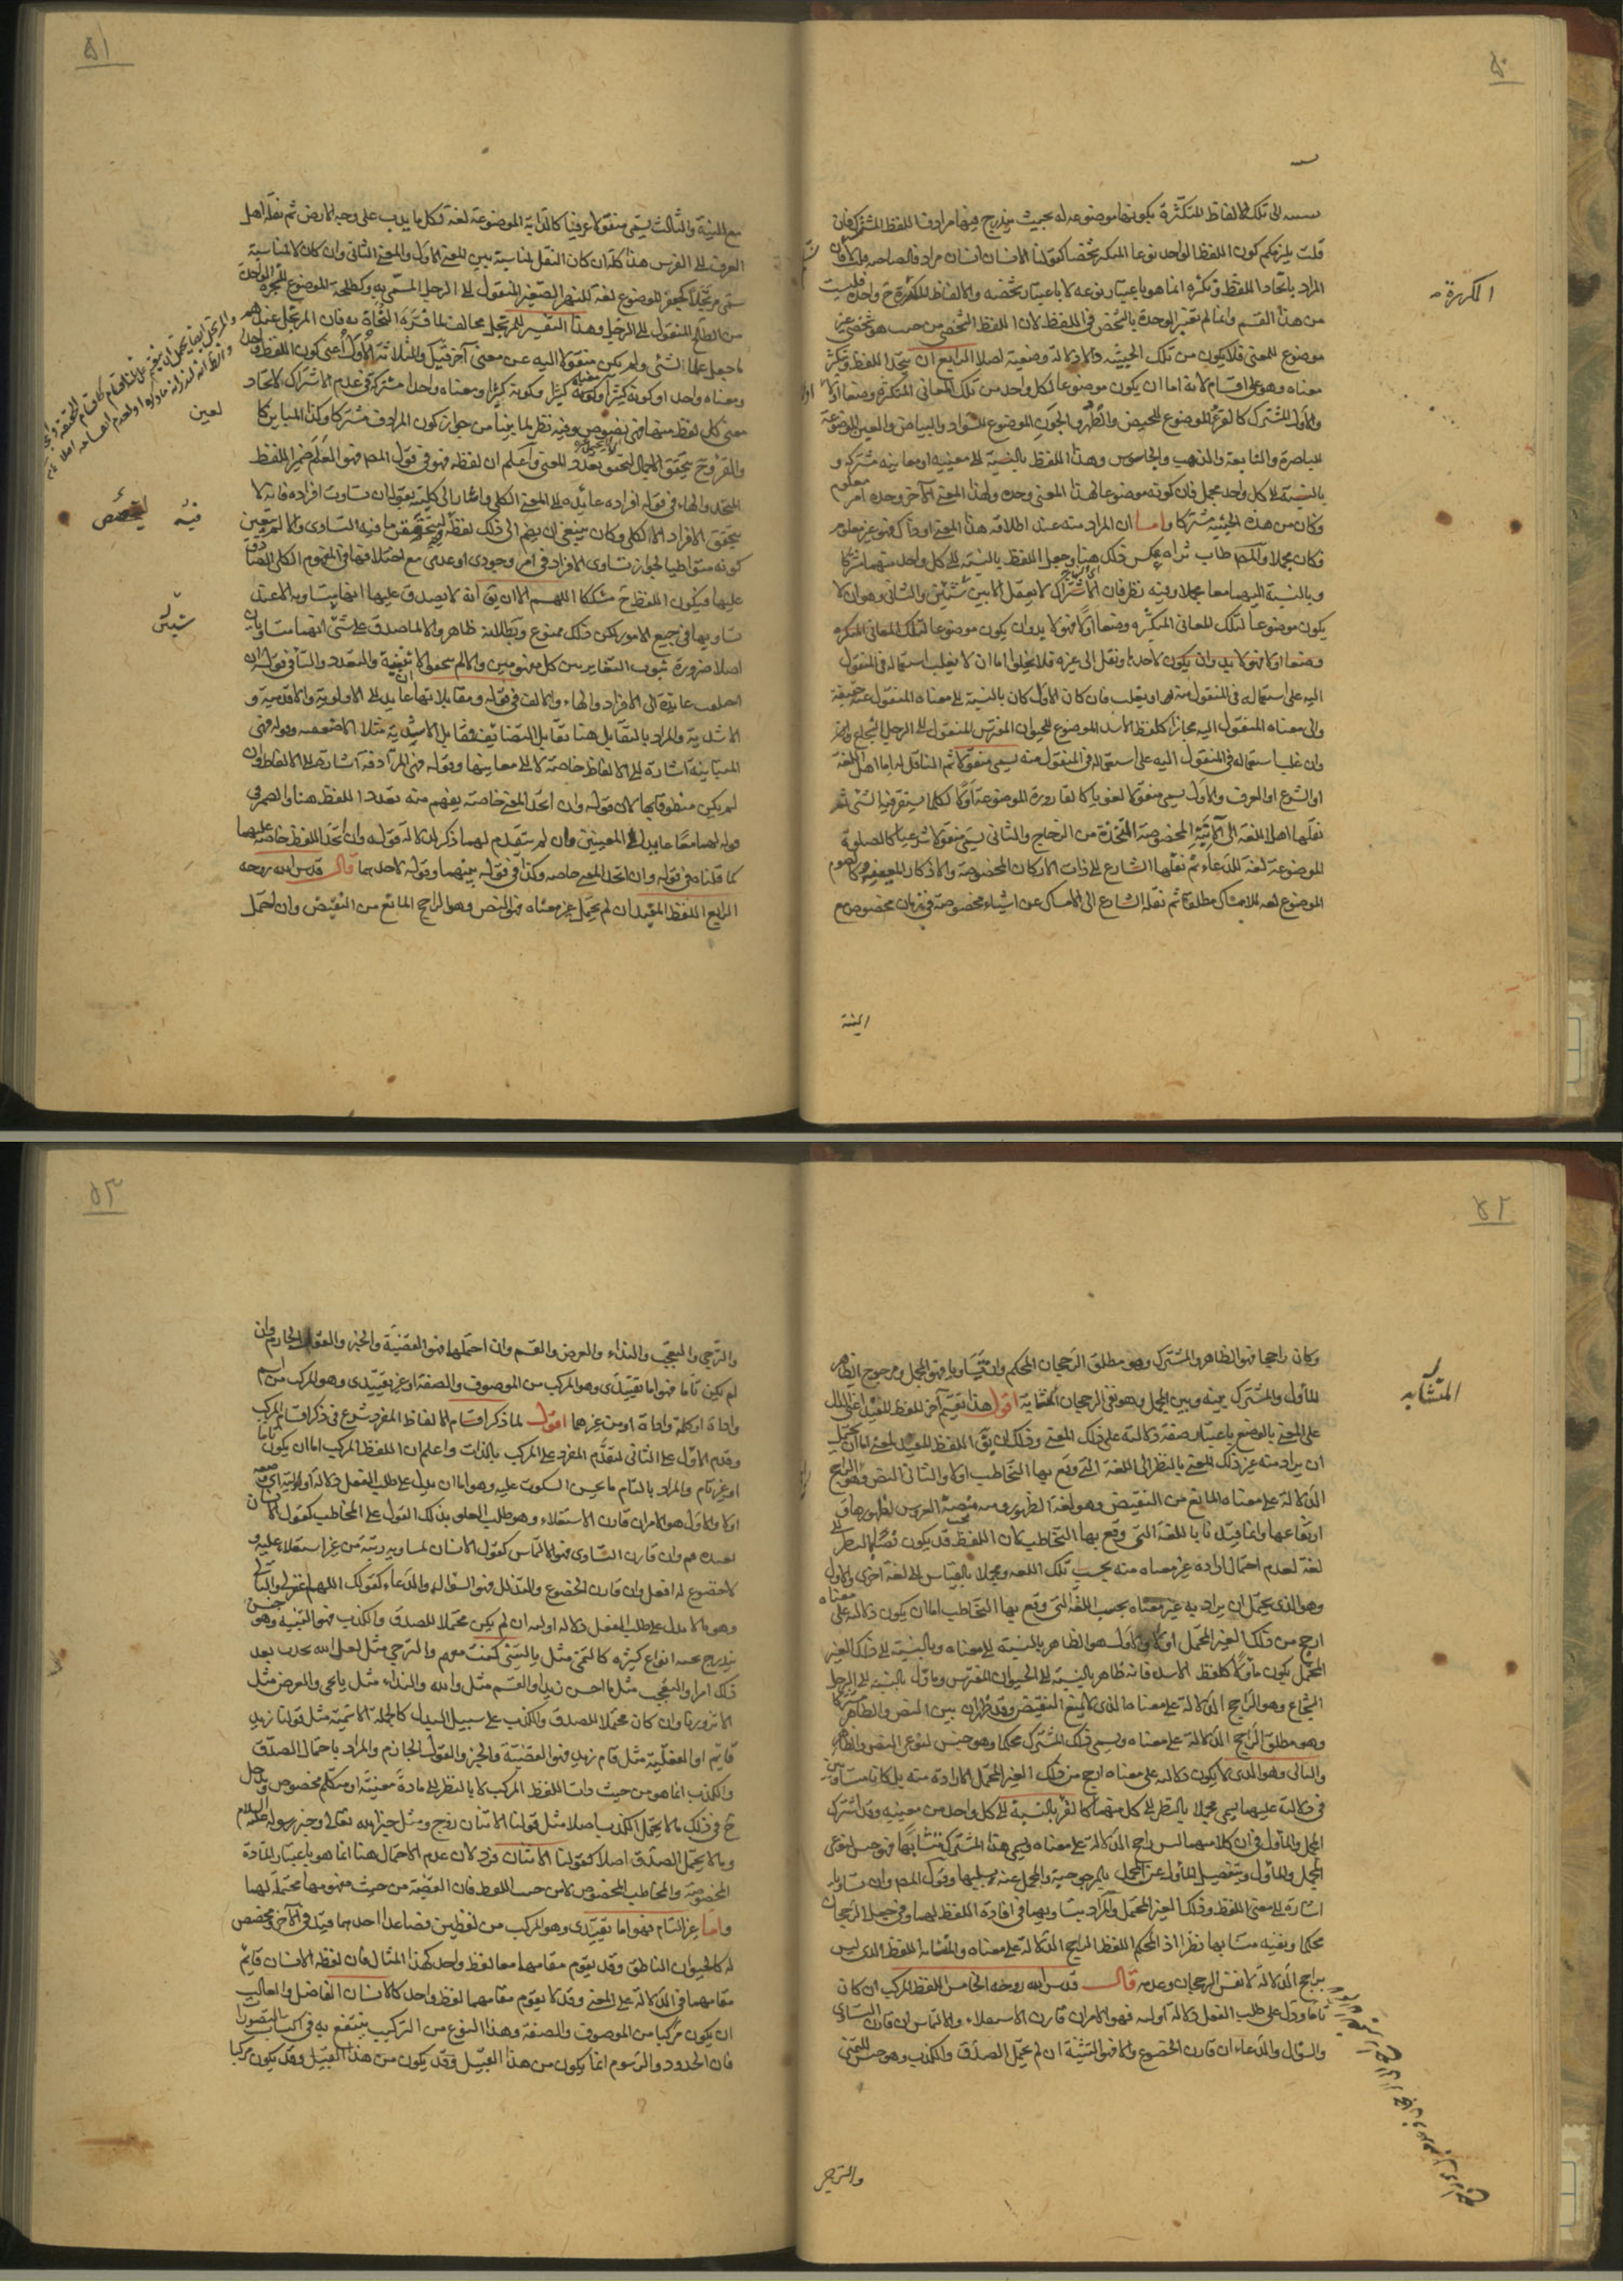 ٥٠
الى تلك الالفاظ المتكثرة بكونها موضوعه له بحيث يندرج فيها مرادفا اللفظ المشترك فان
قلت يلزمكم كون اللفظ الواحد نوعا المتكرر شخصا كقولنا الانسان انسان مرادفا لصاحبه قلت لان
المراد باتحاد اللفظ وتكثره انما هو باعتبار نوعه لا باعتبار شخصه والالفاظ المتكررة ح واحدة فليست
من هذا القسم وانما لم نعتبر الوحدة بالشخص في اللفظ لان اللفظ الشخصي من حيث هو شخصي غير
موضوع للمعنى فلا يكون من تلك الحيثية دلالة وضعية اصلا الرابع ان يتحد اللفظ ويتكثر
معناه وهو على اقسام لانه اما ان يكون موضوعا لكل واحد من تلك المعاني المتكثرة وضعا اولا
والاول المشترك كالقرء الموضوع للحيض والطهر والجون الموضوع للسواد والبياض والعين الموضوعة
للباصرة والنابعة والذهب والجاسوس وهذا اللفظ بالنسبة الى معنييه او معانيه مشترك و
بالنسبة الى كل واحد مجمل فان كونه موضوعا لهذا المعنى وحده ولهذا المعنى الآخر وحده امر معلوم
وكان من هذه الحيثية مشتركا واما ان المراد منه عند اطلاقه هذا المعنى او ذاك فهو غير معلوم
فكان مجملا والمص طاب ثراه عكس ذلك هنا وجعل اللفظ بالنسبة الى كل واحد منهما مشتركا
وبالنسبة اليهما معا مجملا وفيه نظر فان الاشتراك لا يعقل الا بين شيئين والثاني وهو ان لا
يكون موضوعا لتلك المعاني المتكثره وضعا اولا فهو لا بد وان يكون موضوعا لتلك المعاني المتكثره
وضعا اولا فهو لا بد وان يكون لاحدها ونقل الى غيره فلا يخلو اما ان لا يغلب استعماله في المنقول
اليه على استعماله في المنقول منه او يغلب فان كان الاول كان بالنسبة الى معناه المنقول عنه حقيقة
والى معناه المنقول اليه مجازا كلفظ الاسد الموضوع للحيوان المفترس المنقول الى الرجل الشجاع
وان غلب استعماله في المنقول اليه على استعماله في المنقول منه يسمى منقولا ثم الناقل له اما اهل اللغة
او الشرع او العرف والاول يسمى منقولا لغويا كالقارورة الموضوعة اولا لكل ما يستقر فيه الشئ ثم
نقلها اهل اللغة الى الآنية المخصوصة المتخذة من الزجاج والثاني يسمى منقولا شرعيا كالصلوة
الموضوعة لغة للدعاء ثم نقلها الشارع الى ذات الاركان المخصوصة والاذكار المعينة وكالصوم
الموضوع لغة للامساك مطلقا ثم نقله الشارع الى الامساك عن اشياء مخصوصة في زمان مخصوص مع
النية
٥١
مع النية والثالث يسمى منقولا عرفيا كالدابة الموضوعة لغة لكل ما يدب على وجه الارض ثم نقله اهل
العرف الى الفرس هذا كله ان كان النقل لمناسبة بين المعنى الاول والمعنى الثاني وان كان لا لمناسبة
سمى مرتجلا كجعفر الموضوع لغة للنهر الصغير المنقول الى الرجل المسمى به وكطلحة الموضوع للشجرة الواحدة
من الطلح المنقول الى الرجل وهذا التفسير للمرتجل مخالف لما فسره النحاة به فان المرتجل عندهم
ما جعل علما لشئ ولم يكن منقولا اليه عن معنى آخر
ومعناه واحد او كونه كثيرا وكونه كثيرا ومعناه واحدا مشتركة في عدم الاشتراك لاتحاد
معنى كل لفظ منها فهي نصوص وفيه نظر لما بينا من جواز كون المرادف مشتركا وكذا المباين كا
والقرء وح يتحقق الاجمال لتحقق تعدد المعنى واعلم ان لفظه فهو في قول المص فهو العلم ضمير اللفظ
المتحد والهاء في قوله افراده عائد الى المعنى الكلي واشار الى كليته بقوله ان تساوت افراده فانه لا
يتحقق الافراد الا للكلي وكان ينبغي ان يضم الى ذلك لفظ
كونه متواطيا لجواز تساوى الافراد في امر وجودي او عدمي مع اختلافها في المفهوم الكلي الصادق
عليها فيكون اللفظ ح مشككا اللهم الا ان يق انه لا يصدق عليها انها متساويه الا عند
تساويها في جميع الامور لكن ذلك ممنوع وبطلانه ظاهر والا لما صدق على شئ انهما متساويان
اصلا ضرورة ثبوت التغاير بين كل مفهومين والا لم يتحقق الاثنينية والتعدد والتاء في قوله ان
اختلفت عائدة الى الافراد والهاء والالف في قوله ومقابلاتها عايد الى الاولوية والاقدمية و
الاشدية والمراد بالتقابل هنا تقابل التضايف فمقابل الاشدية مثلا الاضعفيه وقوله فهي
المتباينة اشارة الى الالفاظ خاصة لا الى معانيها وقوله فهي المرادفة اشارة الى الالفاظ وان
لم يكن منطوقا بها لان قوله وان اتحد المعنى خاصة يفهم منه تعدد اللفظ هنا والضمير في
قوله لهما معا عايد الى المعنيين وان لم يتقدم لهما ذكر لدلالة قوله وان اتحد اللفظ خاصة عليهما
كما قلناه في قوله وان اتحد المعنى خاصه وكذا في قوله بينهما وقوله لاحدهما قال قدس الله روحه
الرابع اللفظ المفيد ان لم يحتمل غير معناه فهو النص وهو الراجح المانع من النقيض وان احتمل
٥٢
المتشابه
وكان راجحا فهو الظاهر والمشترك وهو مطلق الرجحان المحكم وان تساويا فهو المجمل ومرجوح الظاهر
المأول والمشترك بينه وبين المجمل وهو نفي الرجحان المتشابه اقول هذا تقسيم آخر للفظ المفيد اعنى الدال
على المعنى بالوضع باعتبار صفة دلالته على ذلك المعنى وذلك ان يق اللفظ المفيد لمعنى اما ان يحتمل
ان يراد منه غير ذلك المعنى بالنظر الى اللغة التي وقع بها التخاطب اولا والثاني النص وهو الراجح
الدلالة على معناه المانع من النقيض وهو لغة الظهور ومنه منصة العروس لظهورها و
ارتفاعها وانما قيدنا باللغة التي وقع بها التخاطب لان اللفظ قد يكون نصا بالنظر الى
لغة لعدم احتمال ارادة غير معناه منه بحسب تلك اللغه ومجملا بالقياس الى لغة اخرى والاول
وهو الذي يحتمل ان يراد به غير معناه بحسب اللغة التي وقع بها التخاطب اما ان يكون دلالته على معناه
ارجح من ذلك الغير المحتمل اولا والاول هو الظاهر بالنسبة الى معناه وبالنسبة الى ذلك الغير
المحتمل يكون مأولا كلفظ الاسد فانه ظاهر بالنسبة الى الحيوان المفترس ومأول بالنسبة الى الرجل
الشجاع وهو الراجح الدلالة على معناه الذي لا يمنع النقيض وقد ظهر ان بين النص والظاهر مشتركا
وهو مطلق الراجح الدلالة على معناه ويسمى ذلك المشترك محكما وهو جنس لنوعي النص والظاهر
والثاني وهو الذي لا يكون دلالته على معناه ارجح من ذلك الغير المحتمل الارادة منه بل كانا متساويين
في دلالته عليهما يسمى مجملا بالنظر الى كل منهما كالقرء بالنسبة الى كل واحد من معنييه وقد اشترك
المجمل والمأول في ان كلا منهما ليس راجح الدلالة على معناه ويسمى هذا المشترك متشابها فهو جنس لنوعي
المجمل والمأول وينفصل المأول عن المجمل بالمرجوحية والمجمل عنه بسلبها وقول المص وان تساويا
اشارة الى معنى اللفظ وذلك الغير المحتمل والمراد بتساويهما في افادة اللفظ لهما وفي جعل الرجحان
محكما ونفيه متشابها نظر اذ المحكم اللفظ الراجح الدلالة على معناه والمتشابه اللفظ الذي ليس
براجح الدلالة لا نفس الرجحان وعدمه قال قدس الله روحه الخامس اللفظ المركب ان كان
تاما ودل على طلب الفعل دلالة اولية فهو الامر ان قارن الاستعلاء والالتماس ان قارن التساوي
والسؤال والدعاء ان قارن الخضوع والا فهو التنبيه ان لم يحتمل الصدق والكذب وهو جنس للتمني
والترجي
٥٣
والترجي والتعجب والنداء والعرض والقسم وان احتملهما فهو القضية والخبر والقول الجازم وان
لم يكن تاما فهو اما تقييدي وهو المركب من الموصوف والصفة او غير تقييدي وهو المركب من اسم
واداة او كلمة واداة او من غيرهما اقول لما ذكر اقسام الالفاظ المفرد شرع في ذكر اقسام المركب
وقدم الاول على الثاني لتقدم المفرد على المركب بالذات واعلم ان اللفظ المركب اما ان يكون تاما
او غير تام والمراد بالتام ما يحسن السكوت عليه وهو اما ان يدل على طلب الفعل دلالة اولية اي وضعية
اولا والاول هو الامر ان قارن الاستعلاء وهو طلب العلو بذلك القول على المخاطب كقول الانسان
لعبده قم وان قارن التساوي فهو الالتماس كقول الانسان لمساويه رتبة من غير استعلاء عليه و
لا خضوع له افعل وان قارن الخضوع والتذلل فهو السؤال والدعاء كقولك اللهم اغفر لي والثاني
وهو ما لا يدل على طلب الفعل دلالة اولية ان لم يكن محتملا للصدق والكذب فهو التنبيه وهو جنس
يندرج تحته انواع كثيره كالتمني مثل يا ليتني كنت معهم والترجي مثل لعل الله يحدث بعد
ذلك امرا والتعجب مثل ما احسن زيدا والقسم مثل والله والنداء مثل يا يحيى والعرض مثل
الا تزورنا وان كان محتملا للصدق والكذب على سبيل البدل كالجملة الاسمية مثل قولنا زيد
قايم او الفعلية مثل قام زيد فهو القضية والخبر والقول الجازم والمراد باحتمال الصدق
والكذب انما هو من حيث ذات اللفظ المركب لا بالنظر الى مادة معينة او متكلم مخصوص ويدخل
ح في ذلك ما لا يحتمل الكذب اصلا مثل قولنا الاثنان زوج ومثل خبر الله تعالى وخبر رسوله عليه السلام
وما لا يحتمل الصدق اصلا كقولنا الاثنان فرد لان عدم الاحتمال هنا انما هو باعتبار المادة
المخصوصة والمخاطب المخصوص لا من حيث اللفظ فان القضية من حيث مفهومها محتملة لهما
واما غير التام فهو اما تقييدي وهو المركب من لفظين فصاعدا احدهما قيد في الآخر ومخصص
له كالحيوان الناطق وقد يقوم مقامهما معا لفظ واحد كهذا المثال فان لفظه الانسان قايم
مقامهما في الدلالة على المعنى وقد لا يقوم مقامهما لفظ واحد كالانسان الفاضل والغالب
ان يكون مركبا من الموصوف والصفة وهذا النوع من التركيب ينتفع به في اكتساب التصورات
فان الحدود والرسوم انما يكون من هذا القبيل وقد يكون من هذا القبيل وقد يكون مركبا